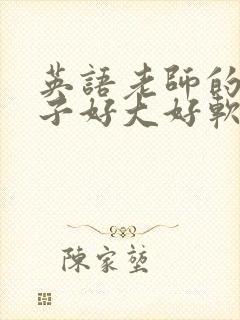 英語老師的
子好大好軟
陳家堃